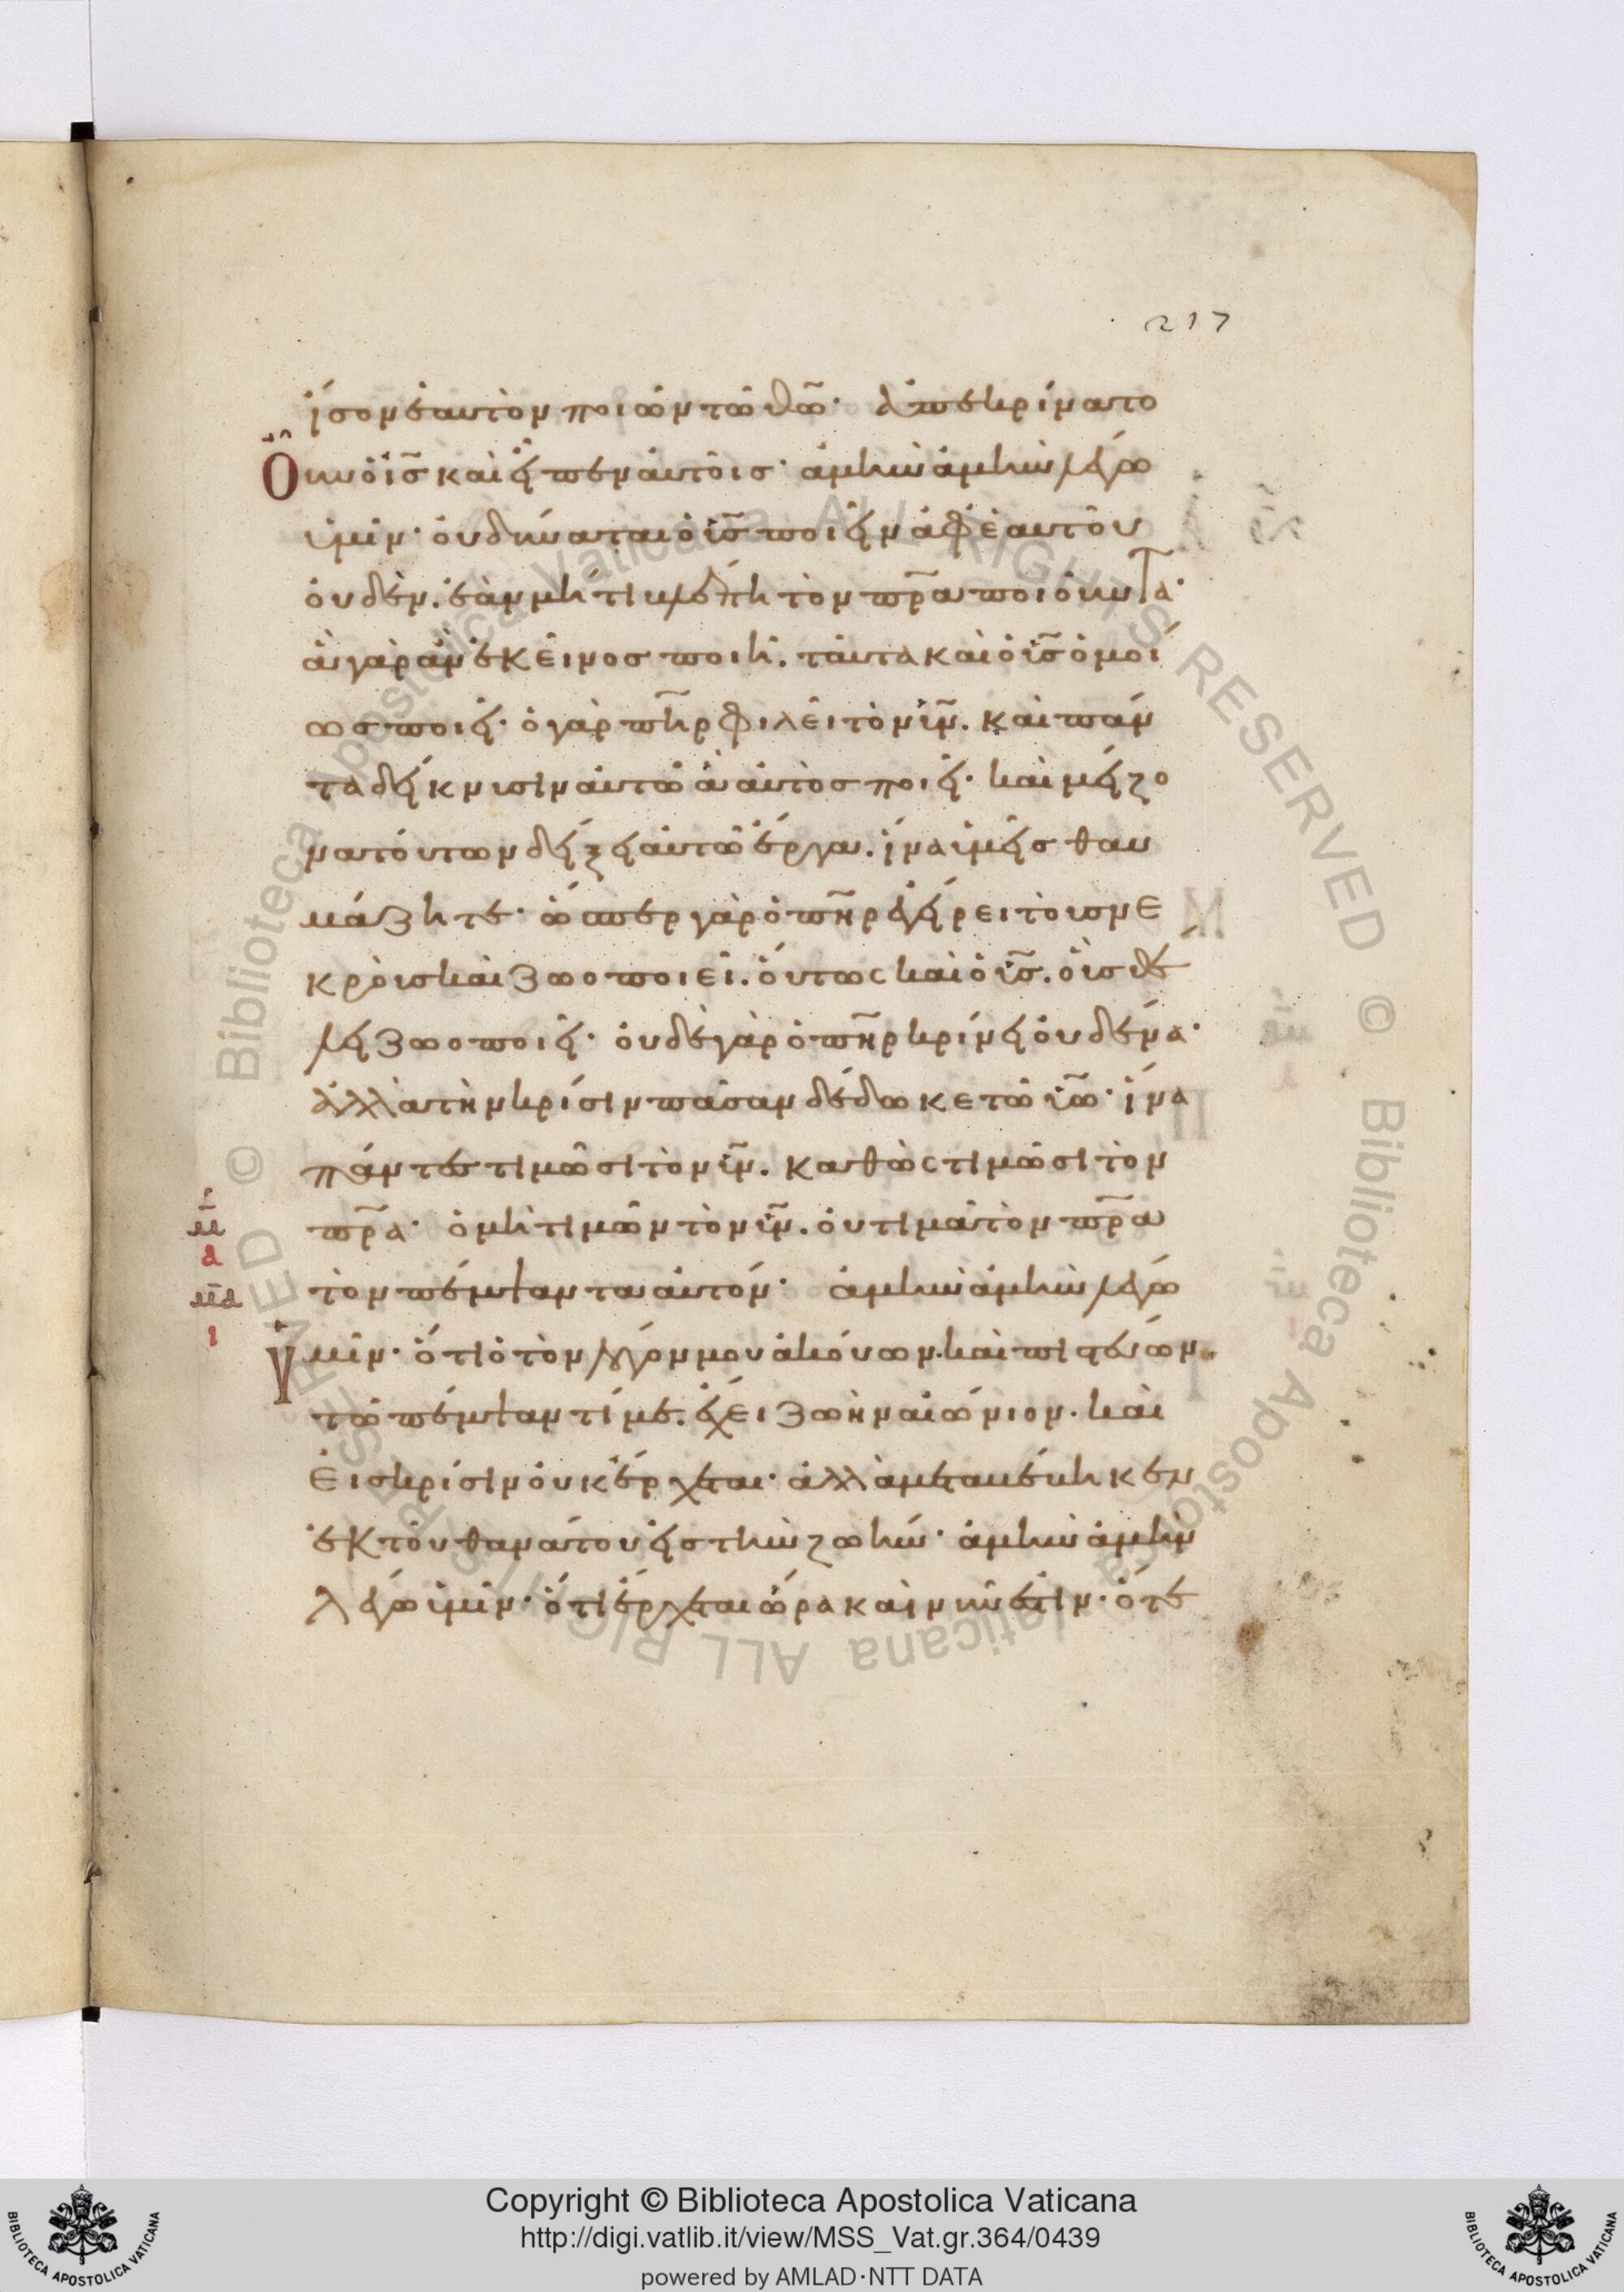 217
ἴσον ἑαυτὸν ποιῶν τῶ θῶ· ἀπεκρίνατο
Οὖν ὁ ἰς καὶ εἶπεν αὐτοῖς· ἀμὴν ἀμὴν λέγω
ὑμῖν· οὐ δύναται ὁ υἱς ποιεῖν ἀφ' ἑαυτοῦ
οὐδὲν. ἐὰν μή τι βλέπη τὸν πρα ποιοῦντα·
ἃ γὰρ ἂν ἐκεῖνος ποιῆ. ταῦτα καὶ ὁ υἱς ὁμοί
ως ποιεῖ· ὁ γὰρ πηρ φιλεῖ τὸν υἱν. καὶ πάν
τα δείκνυσιν αὐτῶ ἃ αὐτὸς ποιεῖ· καὶ μείζο
να τούτων δείξει αὐτῶ ἔργα. ἵνα ὑμεῖς θαυ
μάζητε· ὥσπερ γὰρ ὁ πηρ ἐγείρει τοὺς νε
κροὺς καὶ ζωοποιεῖ. οὕτως καὶ ὁ υἱς. οὓς θέ
λει ζωοποιεῖ· οὐδὲ γὰρ ὁ πηρ κρίνει οὐδένα·
ἀλλὰ τὴν κρίσιν πᾶσαν δέδωκε τῶ υἱῶ· ἵνα
πάντες τιμῶσι τὸν υἱν. καθὼς τιμῶσι τὸν
πρα· ὁ μὴ τιμῶν τὸν υἱν. οὐ τιμᾶ τὸν πρα
τὸν πέμψαντα αὐτόν· ἀμὴν ἀμὴν λέγω
Ὑμῖν· ὅτι ὁ τὸν λόγον μου ἀκούων. καὶ πιστεύων
τῶ πέμψαντί με. ἔχει ζωὴν αἰώνιον. καὶ
εἰς κρίσιν οὐκ ἔρχεται· ἀλλὰ μεταβέβηκεν
ἐκ τοῦ θανάτου εἰς τὴν ζωήν· ἀμὴν ἀμὴν
λέγω ὑμῖν· ὅτι ἔρχεται ὥρα καὶ νῦν ἐστιν· ὅτε
© Biblioteca Apostolica Vaticana ALL RIGHTS RESERVED © Biblioteca Apostolica Vaticana ALL RIGHTS RESERVED
Copyright © Biblioteca Apostolica Vaticana
http://digi.vatlib.it/view/MSS_Vat.gr.364/0439
powered by AMLAD·NTT DATA
BIBLIOTECA APOSTOLICA VATICANA
BIBLIOTECA APOSTOLICA VATICANA